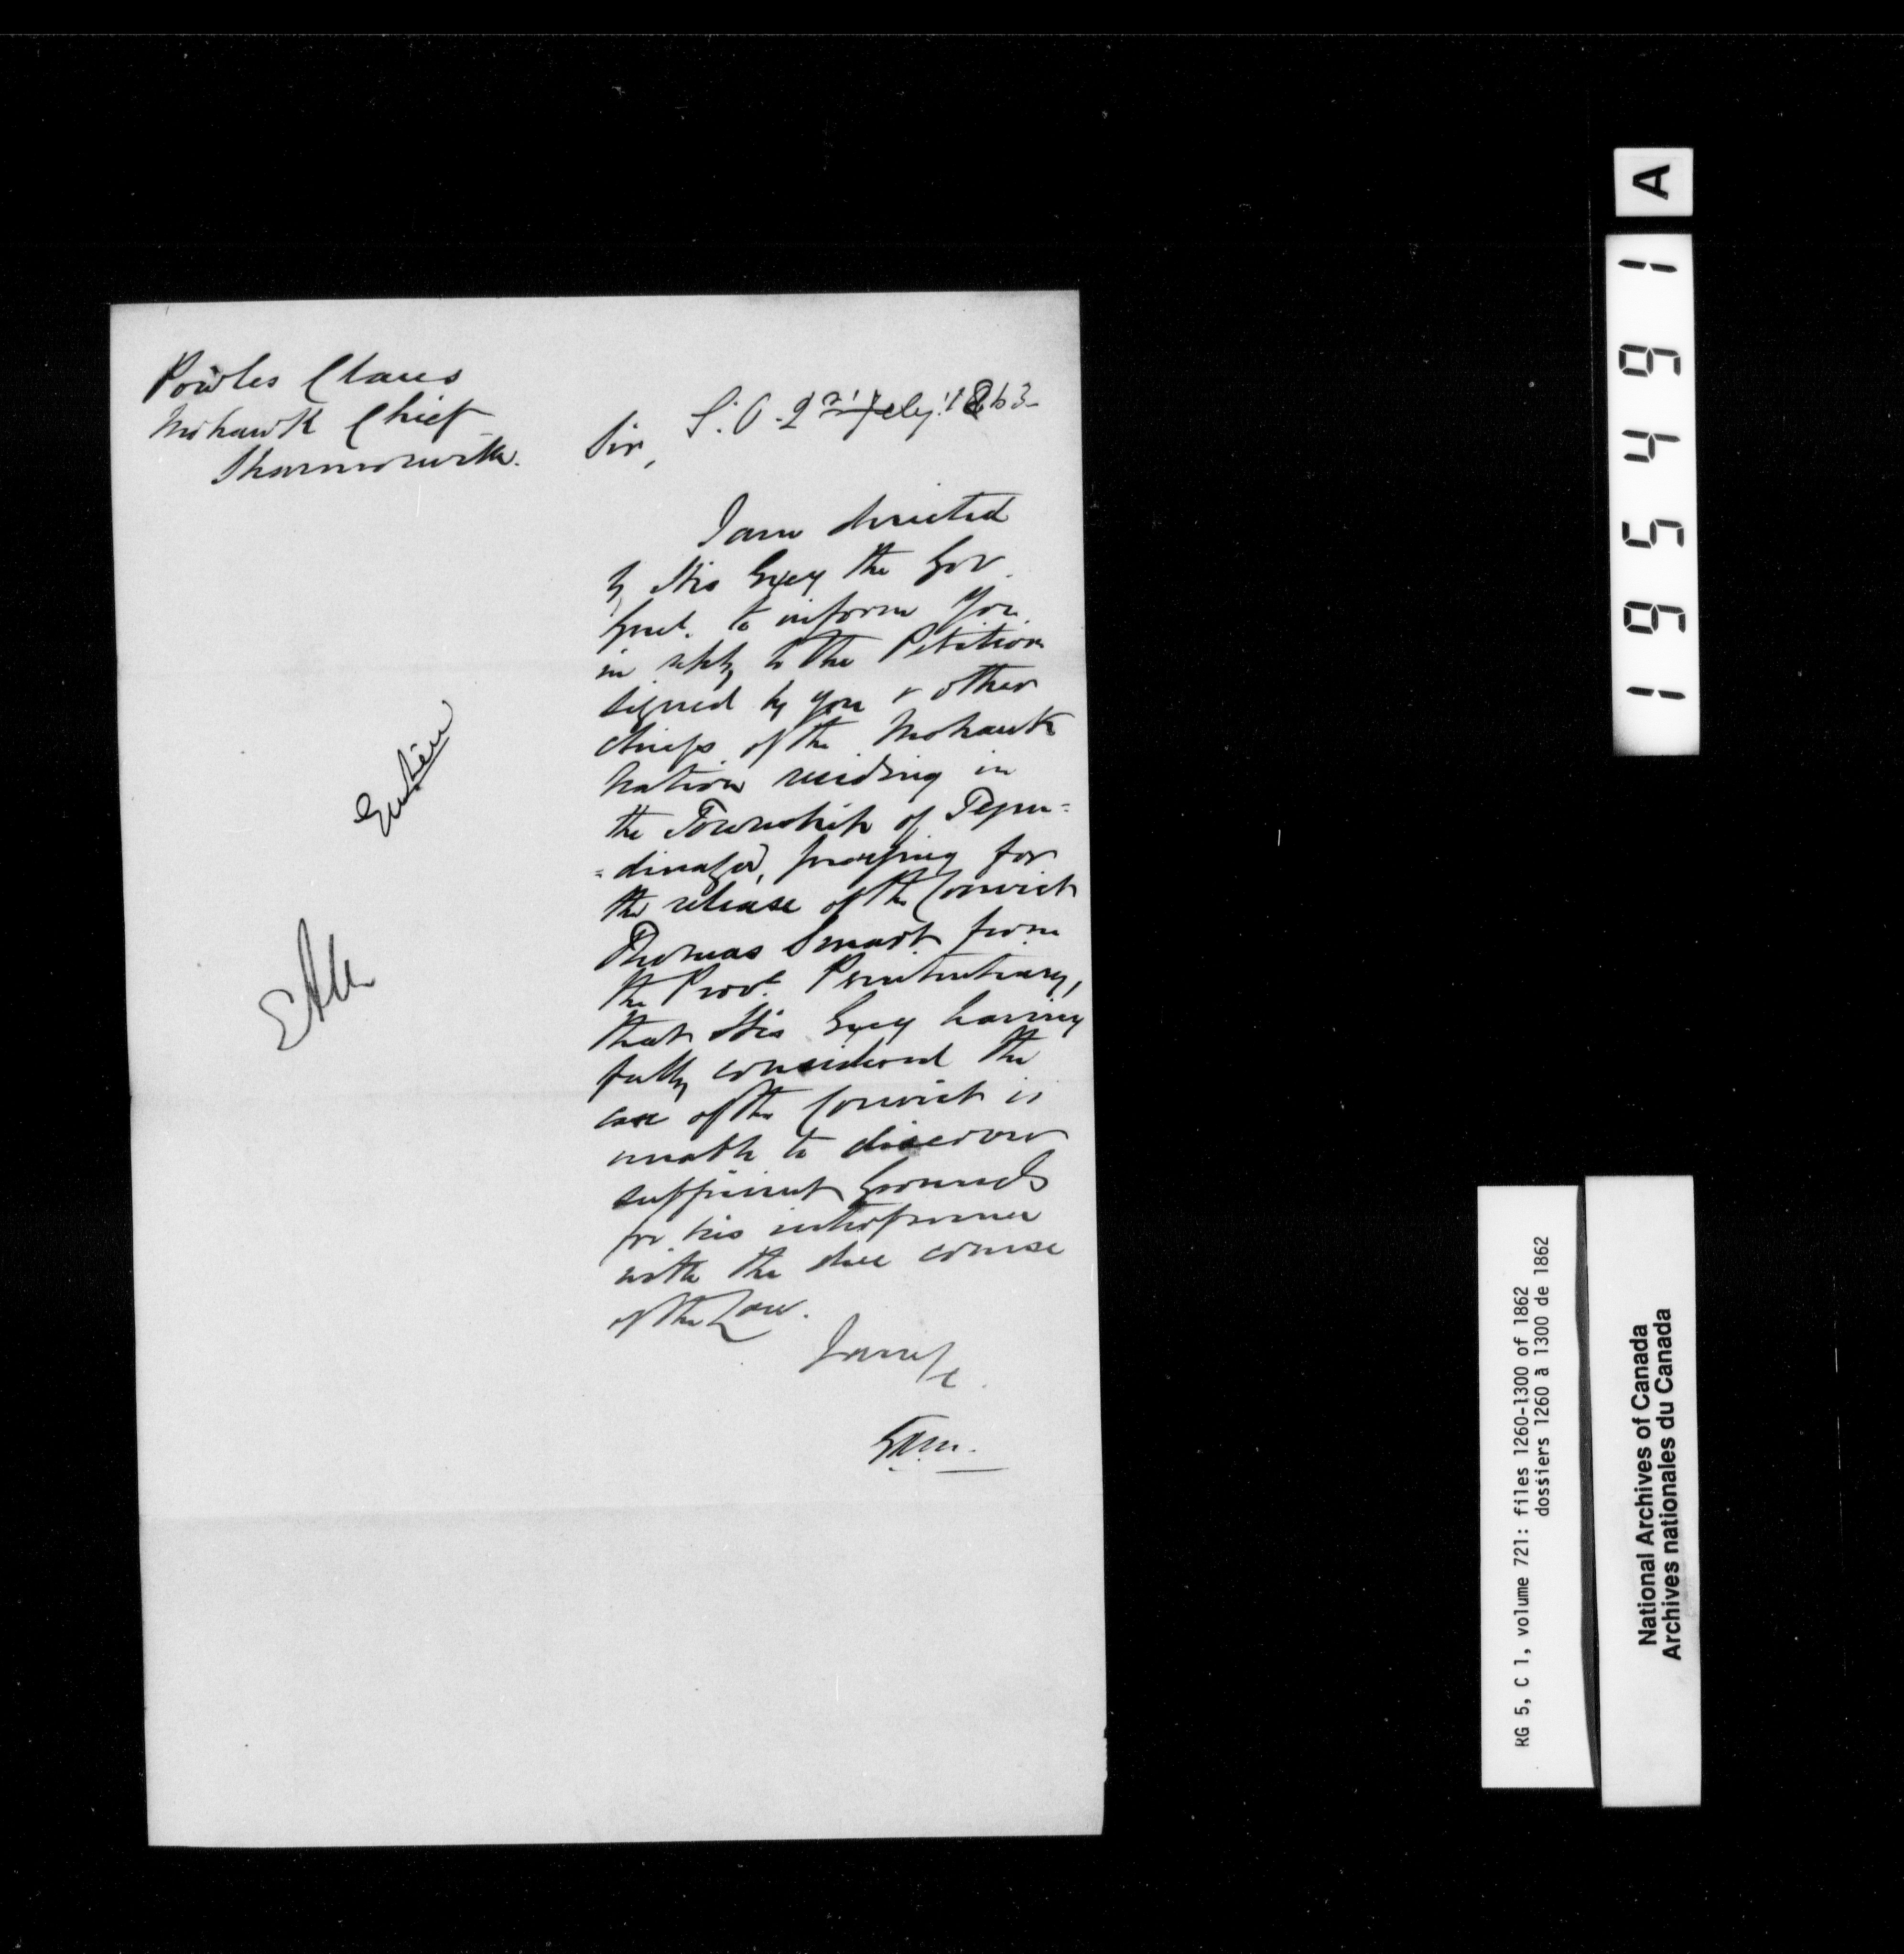 Powles Claus
Mohawk Chief
Shannonville.
S. O. 2nd Feby. 1863-
Sir,
I am directed
by His Excy the Gov.
Genl. to inform you
in reply to the Petition
signed by you & other
chiefs of the Mohawk
Nation residing in
the Township of Tyen=
=dinaga, praying for
the release of the Convict
Thomas Smart from
the Provl. Penitentiary,
that His Excy having
fully considered the
case of the Convict is
unable to discover
sufficient Grounds
for his interference
with the due course
of the Law.
I am &c.
EAM
A
195491
RG 5, C 1, volume 721: files 1260-1300 of 1862
dossiers 1260 à 1300 de 1862
National Archives of Canada
Archives nationales du Canada